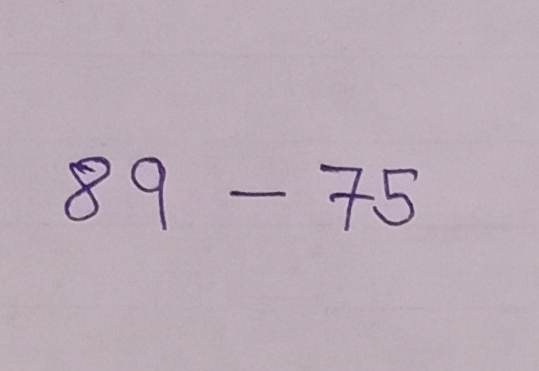 89 - 75